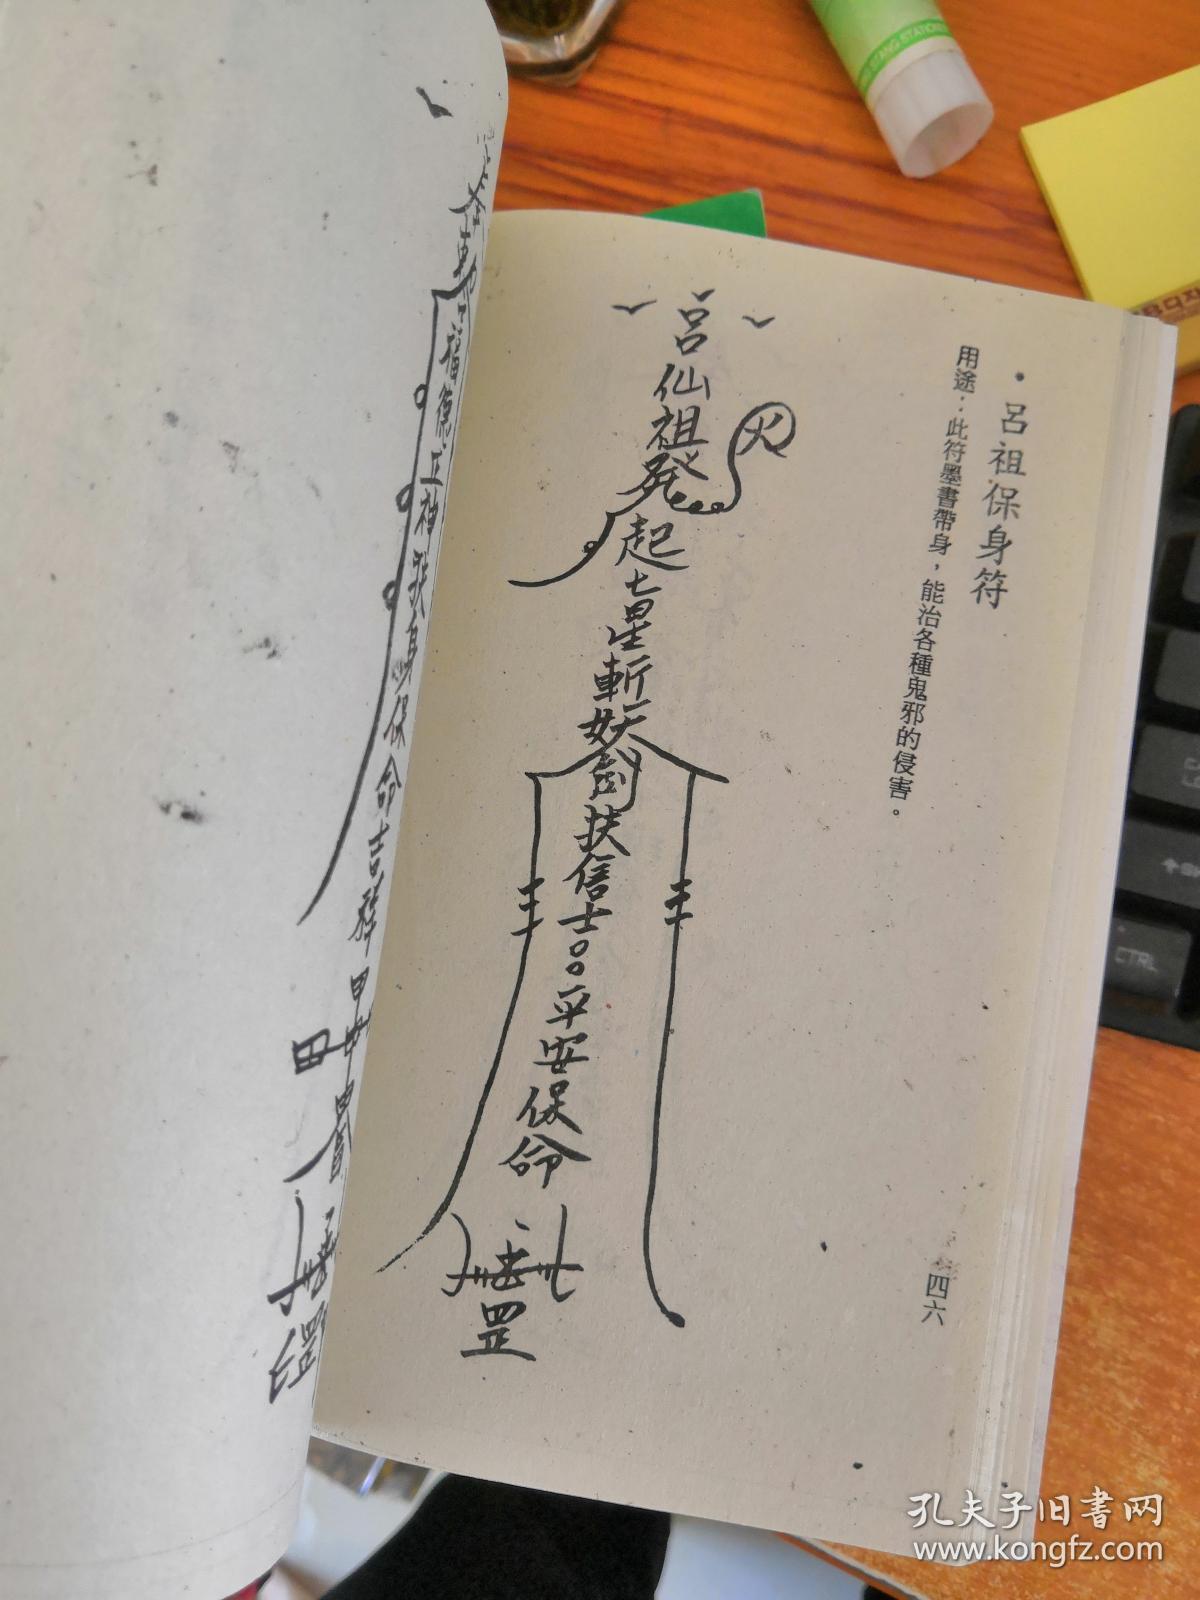 呂祖保身符
用途：此符墨書帶身，能治各種鬼邪的侵害。
呂仙祖発起七星斬妖劍扶信士○○平安保命
火
罡
四六
福德正神扶身保命吉祥
罡
孔夫子旧书网
www.kongfz.com
CTRL